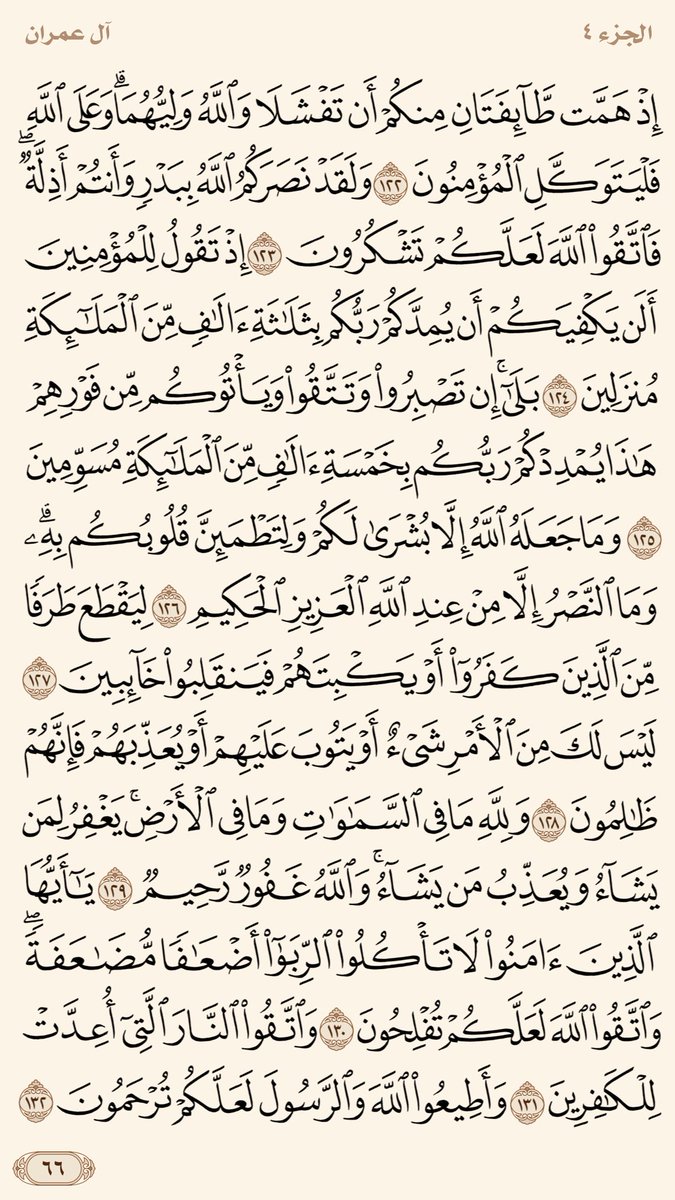 الجزء ٤
آل عمران
إِذْ هَمَّت طَّآئِفَتَانِ مِنكُمْ أَن تَفْشَلَا وَٱللَّهُ وَلِيُّهُمَاۗ وَعَلَى ٱللَّهِ
فَلْيَتَوَكَّلِ ٱلْمُؤْمِنُونَ ١٢٢ وَلَقَدْ نَصَرَكُمُ ٱللَّهُ بِبَدْرٍ وَأَنتُمْ أَذِلَّةٌۖ
فَٱتَّقُوا۟ ٱللَّهَ لَعَلَّكُمْ تَشْكُرُونَ ١٢٣ إِذْ تَقُولُ لِلْمُؤْمِنِينَ
أَلَن يَكْفِيَكُمْ أَن يُمِدَّكُمْ رَبُّكُم بِثَلَـٰثَةِ ءَالَـٰفٍ مِّنَ ٱلْمَلَـٰٓئِكَةِ
مُنزَلِينَ ١٢٤ بَلَىٰٓۚ إِن تَصْبِرُوا۟ وَتَتَّقُوا۟ وَيَأْتُوكُم مِّن فَوْرِهِمْ
هَـٰذَا يُمْدِدْكُمْ رَبُّكُم بِخَمْسَةِ ءَالَـٰفٍ مِّنَ ٱلْمَلَـٰٓئِكَةِ مُسَوِّمِينَ
١٢٥ وَمَا جَعَلَهُ ٱللَّهُ إِلَّا بُشْرَىٰ لَكُمْ وَلِتَطْمَئِنَّ قُلُوبُكُم بِهِۦۗ
وَمَا ٱلنَّصْرُ إِلَّا مِنْ عِندِ ٱللَّهِ ٱلْعَزِيزِ ٱلْحَكِيمِ ١٢٦ لِيَقْطَعَ طَرَفًا
مِّنَ ٱلَّذِينَ كَفَرُوٓا۟ أَوْ يَكْبِتَهُمْ فَيَنقَلِبُوا۟ خَآئِبِينَ ١٢٧
لَيْسَ لَكَ مِنَ ٱلْأَمْرِ شَىْءٌ أَوْ يَتُوبَ عَلَيْهِمْ أَوْ يُعَذِّبَهُمْ فَإِنَّهُمْ
ظَـٰلِمُونَ ١٢٨ وَلِلَّهِ مَا فِى ٱلسَّمَـٰوَٰتِ وَمَا فِى ٱلْأَرْضِۚ يَغْفِرُ لِمَن
يَشَآءُ وَيُعَذِّبُ مَن يَشَآءُۚ وَٱللَّهُ غَفُورٌ رَّحِيمٌ ١٢٩ يَـٰٓأَيُّهَا
ٱلَّذِينَ ءَامَنُوا۟ لَا تَأْكُلُوا۟ ٱلرِّبَوٰٓا۟ أَضْعَـٰفًا مُّضَـٰعَفَةًۖ
وَٱتَّقُوا۟ ٱللَّهَ لَعَلَّكُمْ تُفْلِحُونَ ١٣٠ وَٱتَّقُوا۟ ٱلنَّارَ ٱلَّتِىٓ أُعِدَّتْ
لِلْكَـٰفِرِينَ ١٣١ وَأَطِيعُوا۟ ٱللَّهَ وَٱلرَّسُولَ لَعَلَّكُمْ تُرْحَمُونَ ١٣٢
٦٦